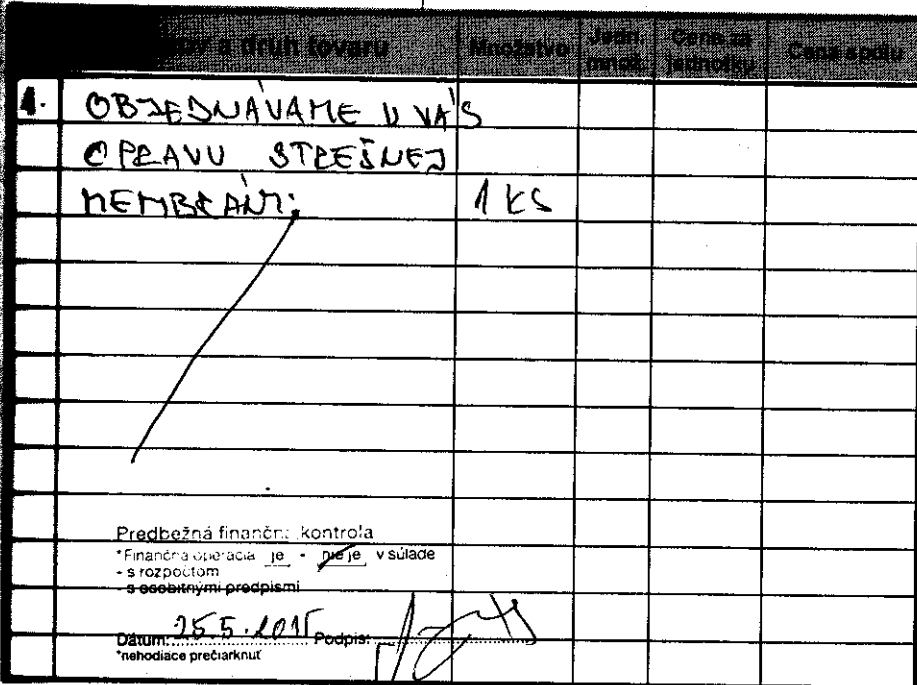 a druh tovaru Množstvo Jedn. množ. Cena za jednotku Cena spolu
1. OBJEDNÁVAME U VÁS
OPRAVU STREŠNEJ
MEMBRÁNY: 1 KS
Predbežná finančná kontrola
*Finančná operácia je - nie je v súlade
- s rozpočtom
- s osobitnými predpismi
Dátum: 25.5.2015 Podpis:
*nehodiace prečiarknuť